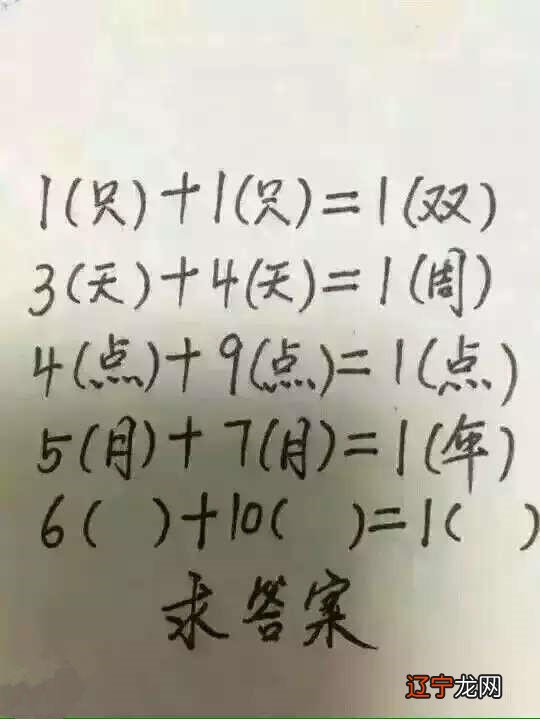 1(只)+1(只)=1(双)
3(天)+4(天)=1(周)
4(点)+9(点)=1(点)
5(月)+7(月)=1(年)
6( )+10( )=1( )
求答案
辽宁龙网